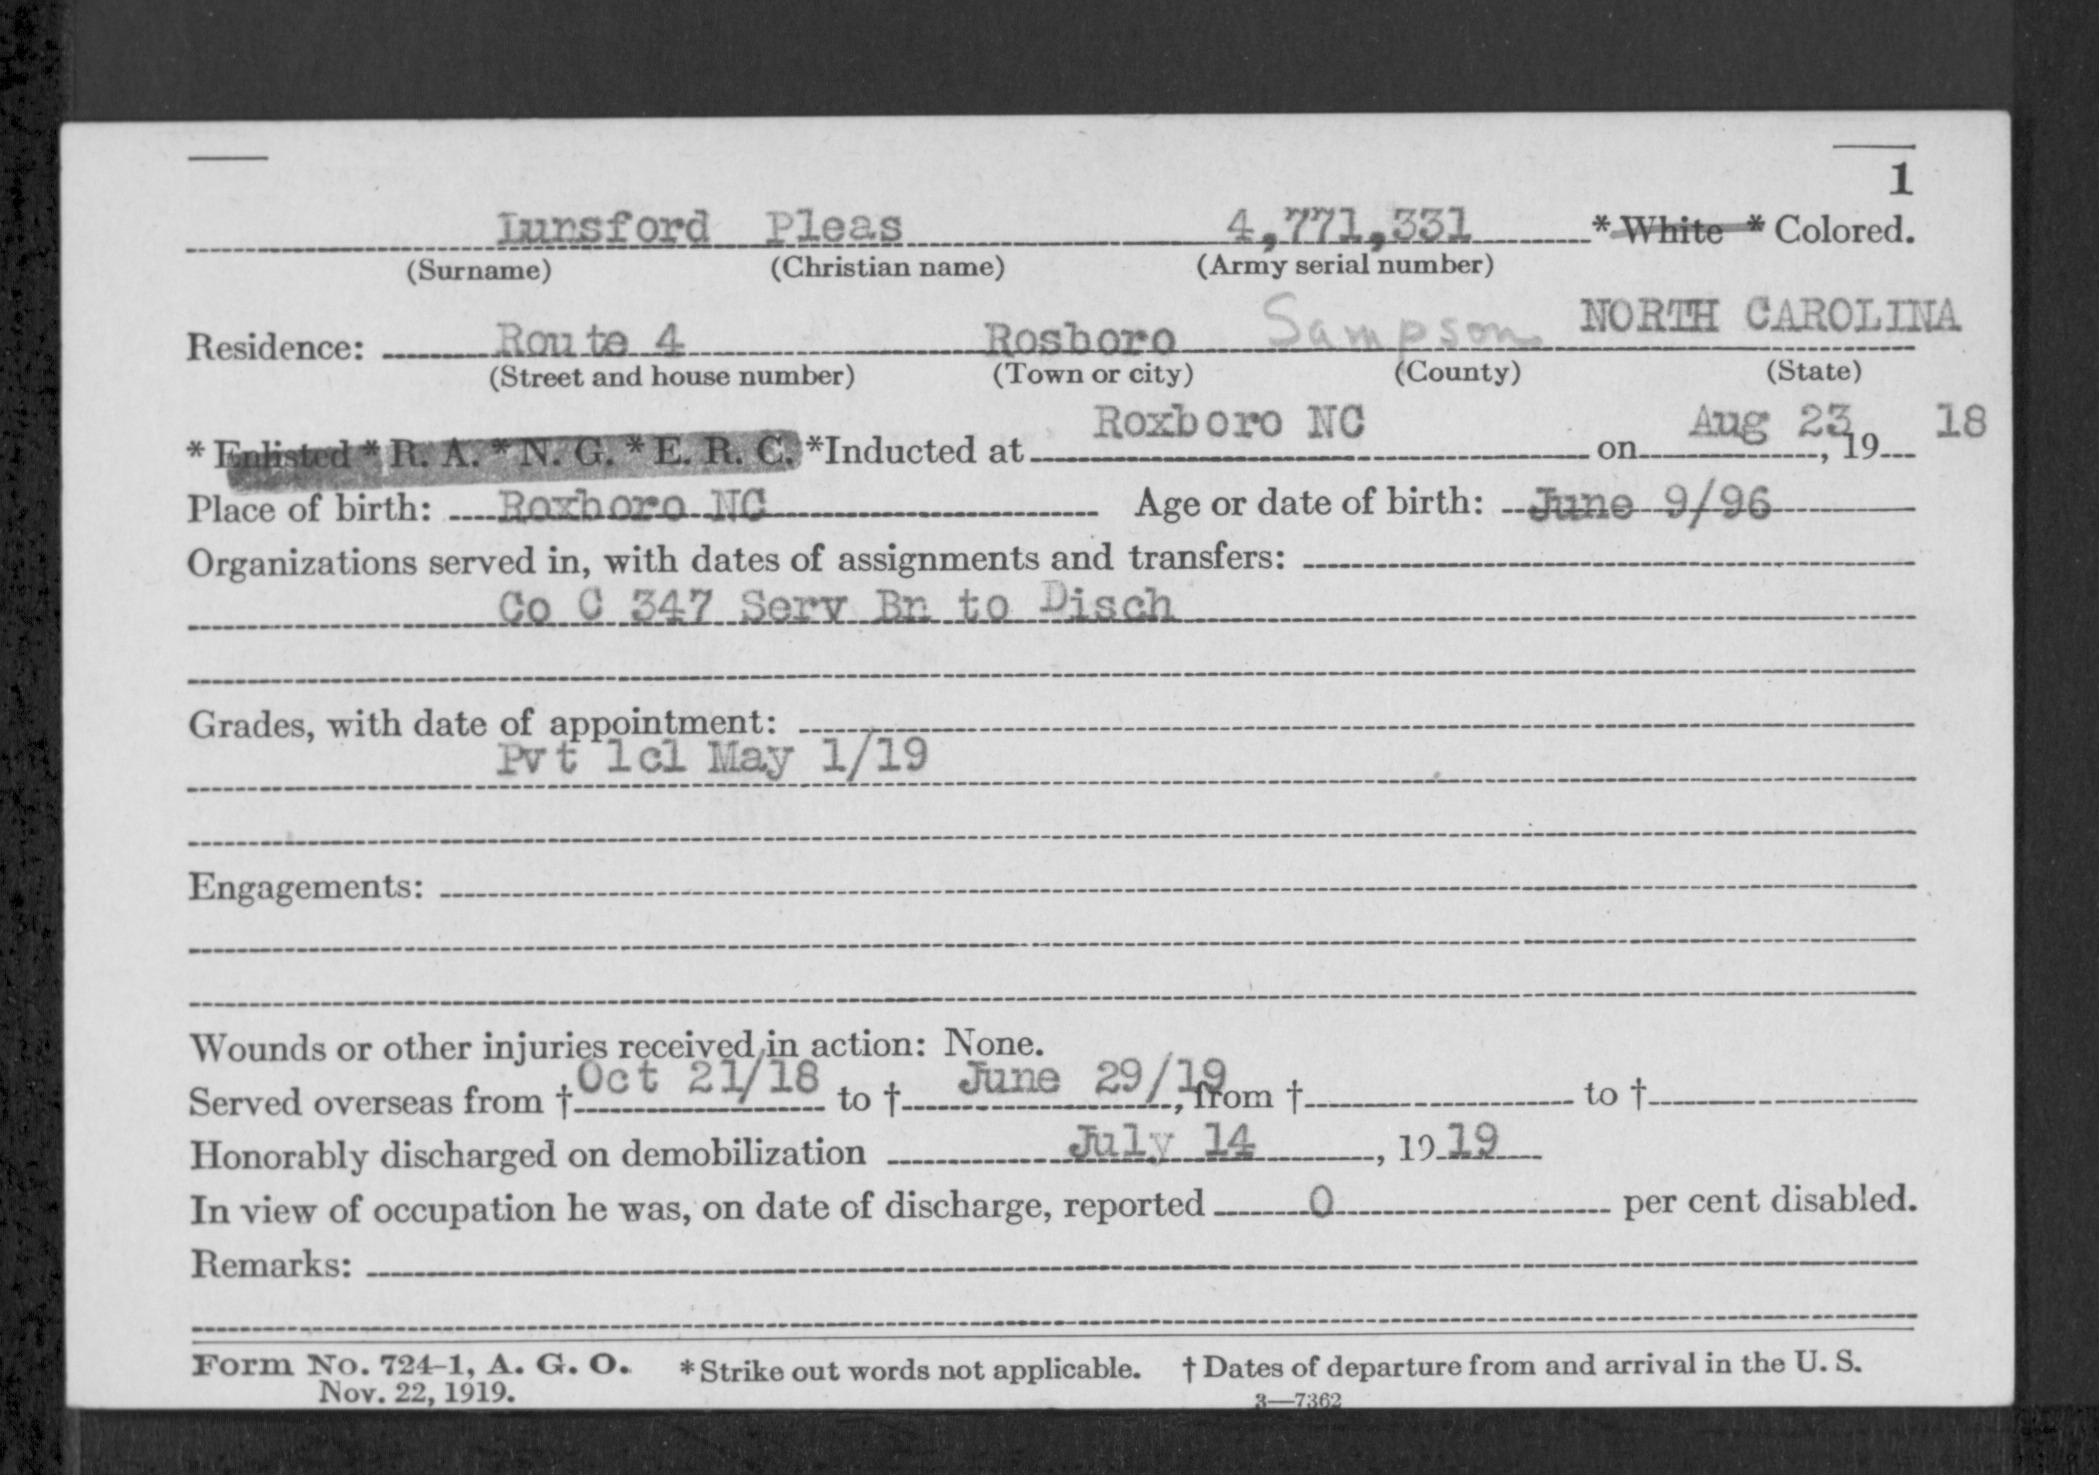 1
Lunsford Pleas 4,771,331 * White * Colored.
(Surname) (Christian name) (Army serial number)
Residence: Route 4 Rosboro Sampson NORTH CAROLINA
(Street and house number) (Town or city) (County) (State)
* Enlisted * R. A. * N. G. * E. R. C. *Inducted at Roxboro NC on Aug 23, 19 18
Place of birth: Roxboro NC Age or date of birth: June 9/96
Organizations served in, with dates of assignments and transfers:
Co C 347 Serv Bn to Disch
Grades, with date of appointment:
Pvt 1cl May 1/19
Engagements:
Wounds or other injuries received in action: None.
Served overseas from † Oct 21/18 to † June 29/19, from † to †
Honorably discharged on demobilization July 14, 19 19
In view of occupation he was, on date of discharge, reported 0 per cent disabled.
Remarks:
Form No. 724-1, A. G. O. * Strike out words not applicable. † Dates of departure from and arrival in the U. S.
Nov. 22, 1919. 3—7362